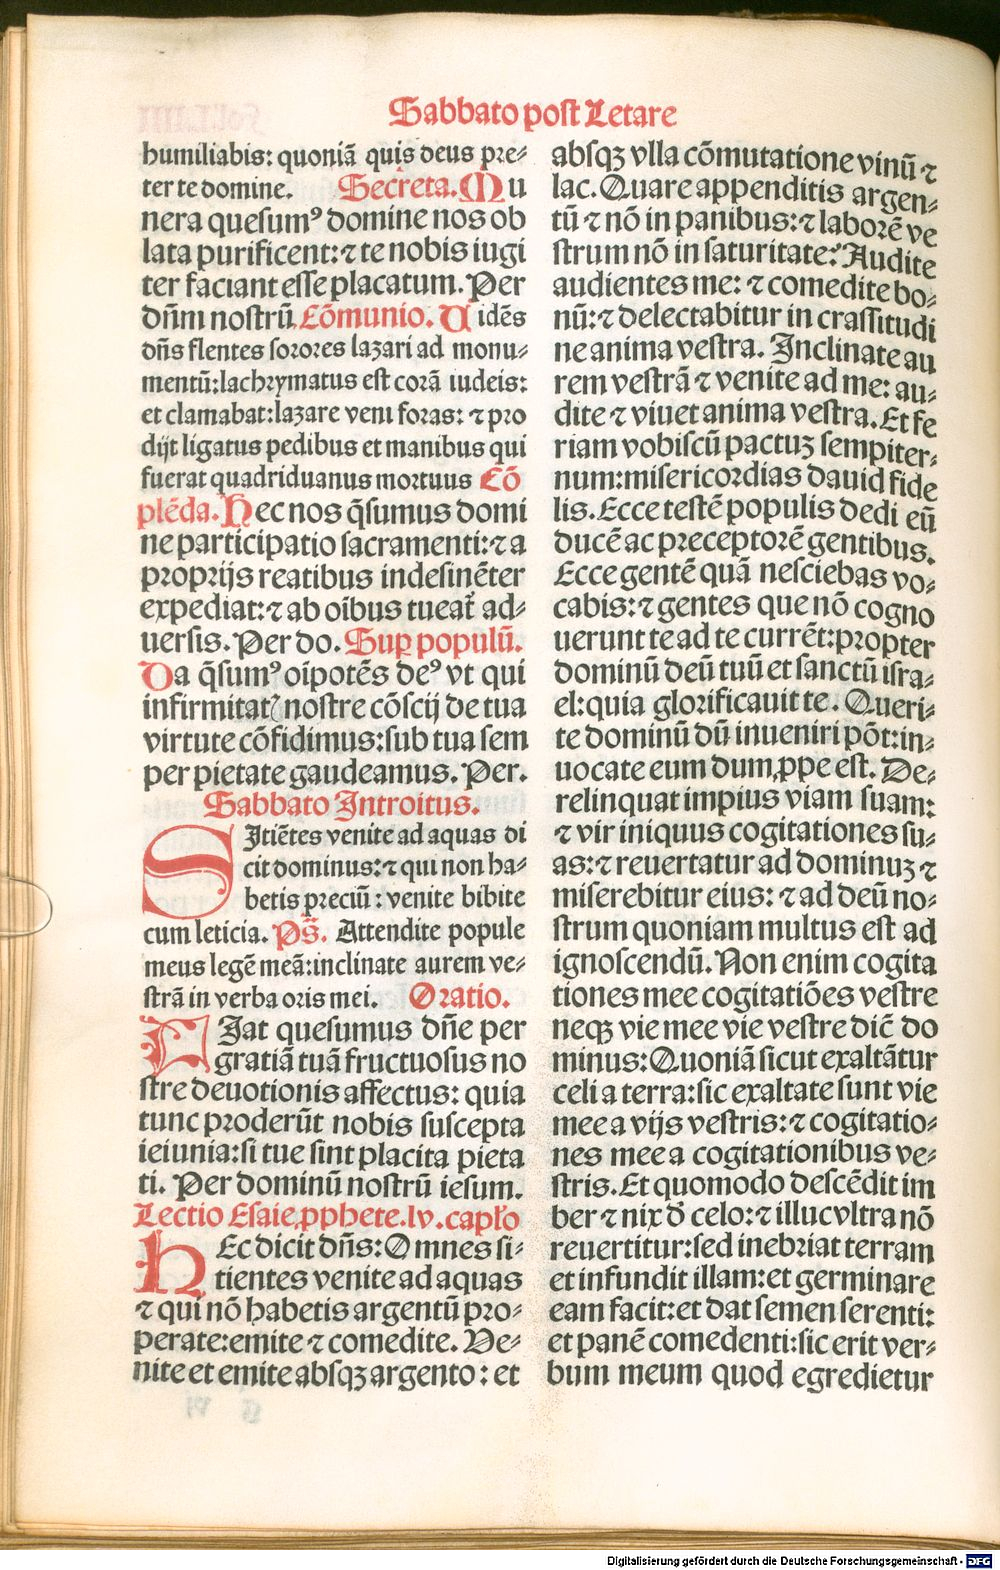 Sabbato post Letare
humiliabis: quoniã quis deus pre⸗
ter te domine. Secreta. Mu
nera quesumꝰ domine nos ob
lata purificent: ⁊ te nobis iugi
ter faciant esse placatum. Per
dñm nostrũ. Cõmunio. Uidẽs
dñs flentes sorores lazari ad monu⸗
mentũ: lachrymatus est corã iudeis:
et clamabat: lazare veni foras: ⁊ pro
dijt ligatus pedibus et manibus qui
fuerat quadriduanus mortuus Cõ
plẽda. Hec nos q̃sumus domi
ne participatio sacramenti: ⁊ a
proprijs reatibus indesinẽter
expediat: ⁊ ab oĩbus tueat᷑ ad⸗
uersis. Per do. Suꝑ populũ.
Da q̃sumꝰ oĩpotẽs deꝰ vt qui
infirmitatꝭ nostre cõscij de tua
virtute cõfidimus: sub tua sem
per pietate gaudeamus. Per.
Sabbato Introitus.
SItiẽtes venite ad aquas di
cit dominus: ⁊ qui non ha⸗
betis preciũ: venite bibite
cum leticia. Ps̃. Attendite popule
meus legẽ meã: inclinate aurem ve⸗
strã in verba oris mei. Oratio.
FIat quesumus dñe per
gratiã tuã fructuosus no
stre deuotionis affectus: quia
tunc proderũt nobis suscepta
ieiunia: si tue sint placita pieta
ti. Per dominũ nostrũ iesum.
Lectio Esaie ꝓphete. lv. capło
HEc dicit dñs: Omnes si⸗
tientes venite ad aquas
⁊ qui nõ habetis argentũ pro⸗
perate: emite ⁊ comedite. Ve⸗
nite et emite absqꝫ argento: et
absqꝫ vlla cõmutatione vinũ ⁊
lac. Quare appenditis argen⸗
tũ ⁊ nõ in panibus: ⁊ laborẽ ve
strum nõ in saturitate? Audite
audientes me: ⁊ comedite bo⸗
nũ: ⁊ delectabitur in crassitudi
ne anima vestra. Inclinate au
rem vestrã ⁊ venite ad me: au⸗
dite ⁊ viuet anima vestra. Et fe
riam vobiscũ pactuꝫ sempiter⸗
num: misericordias dauid fide
lis. Ecce testẽ populis dedi eũ
ducẽ ac preceptorẽ gentibus.
Ecce gentẽ quã nesciebas vo⸗
cabis: ⁊ gentes que nõ cogno
uerunt te ad te currẽt: propter
dominũ deũ tuũ et sanctũ isra⸗
el: quia glorificauit te. Queri⸗
te dominũ dũ inueniri põt: in⸗
uocate eum dum ꝓpe est. De⸗
relinquat impius viam suam:
⁊ vir iniquus cogitationes su⸗
as: ⁊ reuertatur ad dominuꝫ ⁊
miserebitur eius: ⁊ ad deũ no⸗
strum quoniam multus est ad
ignoscendũ. Non enim cogita
tiones mee cogitatiões vestre
neqꝫ vie mee vie vestre dic̃ do
minus: Quoniã sicut exaltãtur
celi a terra: sic exaltate sunt vie
mee a vijs vestris: ⁊ cogitatio⸗
nes mee a cogitationibus ve⸗
stris. Et quomodo descẽdit im
ber ⁊ nix d̃ celo: ⁊ illuc vltra nõ
reuertitur: sed inebriat terram
et infundit illam: et germinare
eam facit: et dat semen serenti:
et panẽ comedenti: sic erit ver⸗
bum meum quod egredietur
Digitalisierung gefördert durch die Deutsche Forschungsgemeinschaft - DFG